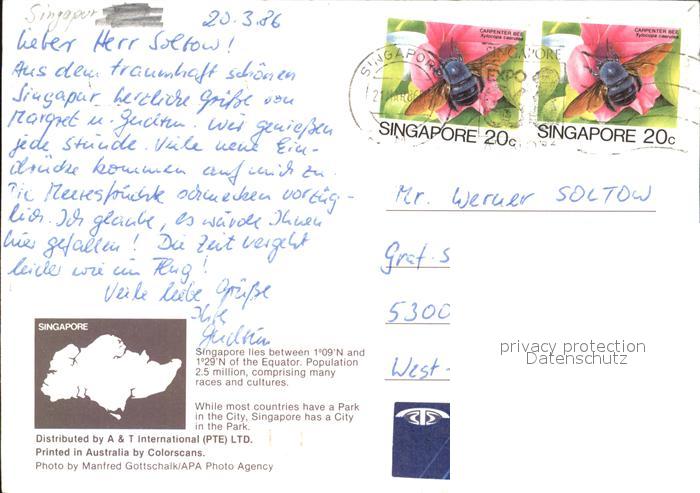 Singapur
20.3.86
Lieber Herr Soltow!
Aus dem traumhaft schönen
Singapur herzliche Grüße von
Margret u. Gudrun. Wir genießen
jede Stunde. Viele neue Ein-
drücke kommen auf mich zu.
Die Meeresfrüchte schmecken vorzüg-
lich. Ich glaube, es würde Ihnen
hier gefallen! Die Zeit vergeht
leider wie im Flug!
Viele liebe Grüße
Ihre
Gudrun
CARPENTER BEE
Xylocopa caerulea
SINGAPORE 20c
CARPENTER BEE
Xylocopa caerulea
SINGAPORE 20c
SINGAPORE
SINGAPORE
EXPO
Mr. Werner SOLTOW
Graf-S
5300
West-
privacy protection
Datenschutz
SINGAPORE
Singapore lies between 1º09'N and
1º29'N of the Equator. Population
2.5 million, comprising many
races and cultures.
While most countries have a Park
in the City, Singapore has a City
in the Park.
Distributed by A & T International (PTE) LTD.
Printed in Australia by Colorscans.
Photo by Manfred Gottschalk/APA Photo Agency